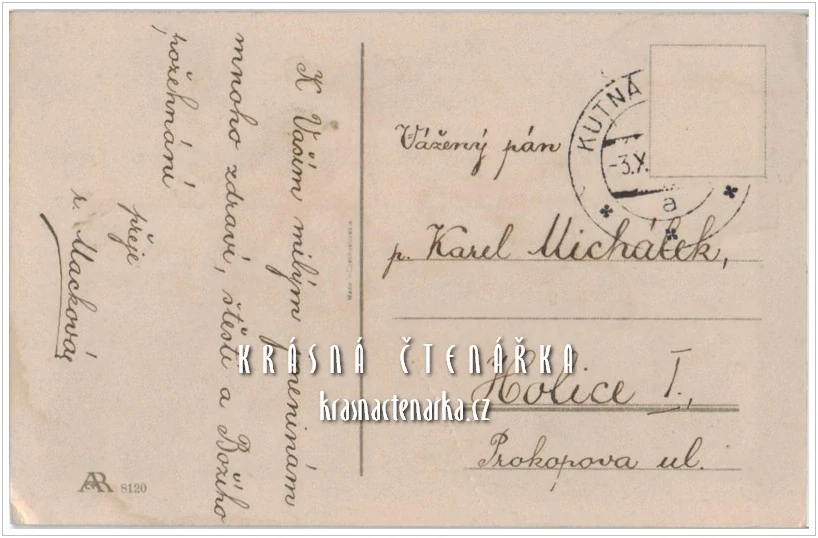 K Vašim milým jmeninám
mnoho zdraví, štěstí a Božího
požehnání
přeje
r. Macková
Vážený pán
p. Karel Michálek,
Holice I.,
Prokopova ul.
KUTNÁ
-3.X.
a
KRÁSNÁ ČTENÁŘKA
krasnactenarka.cz
AR 8120